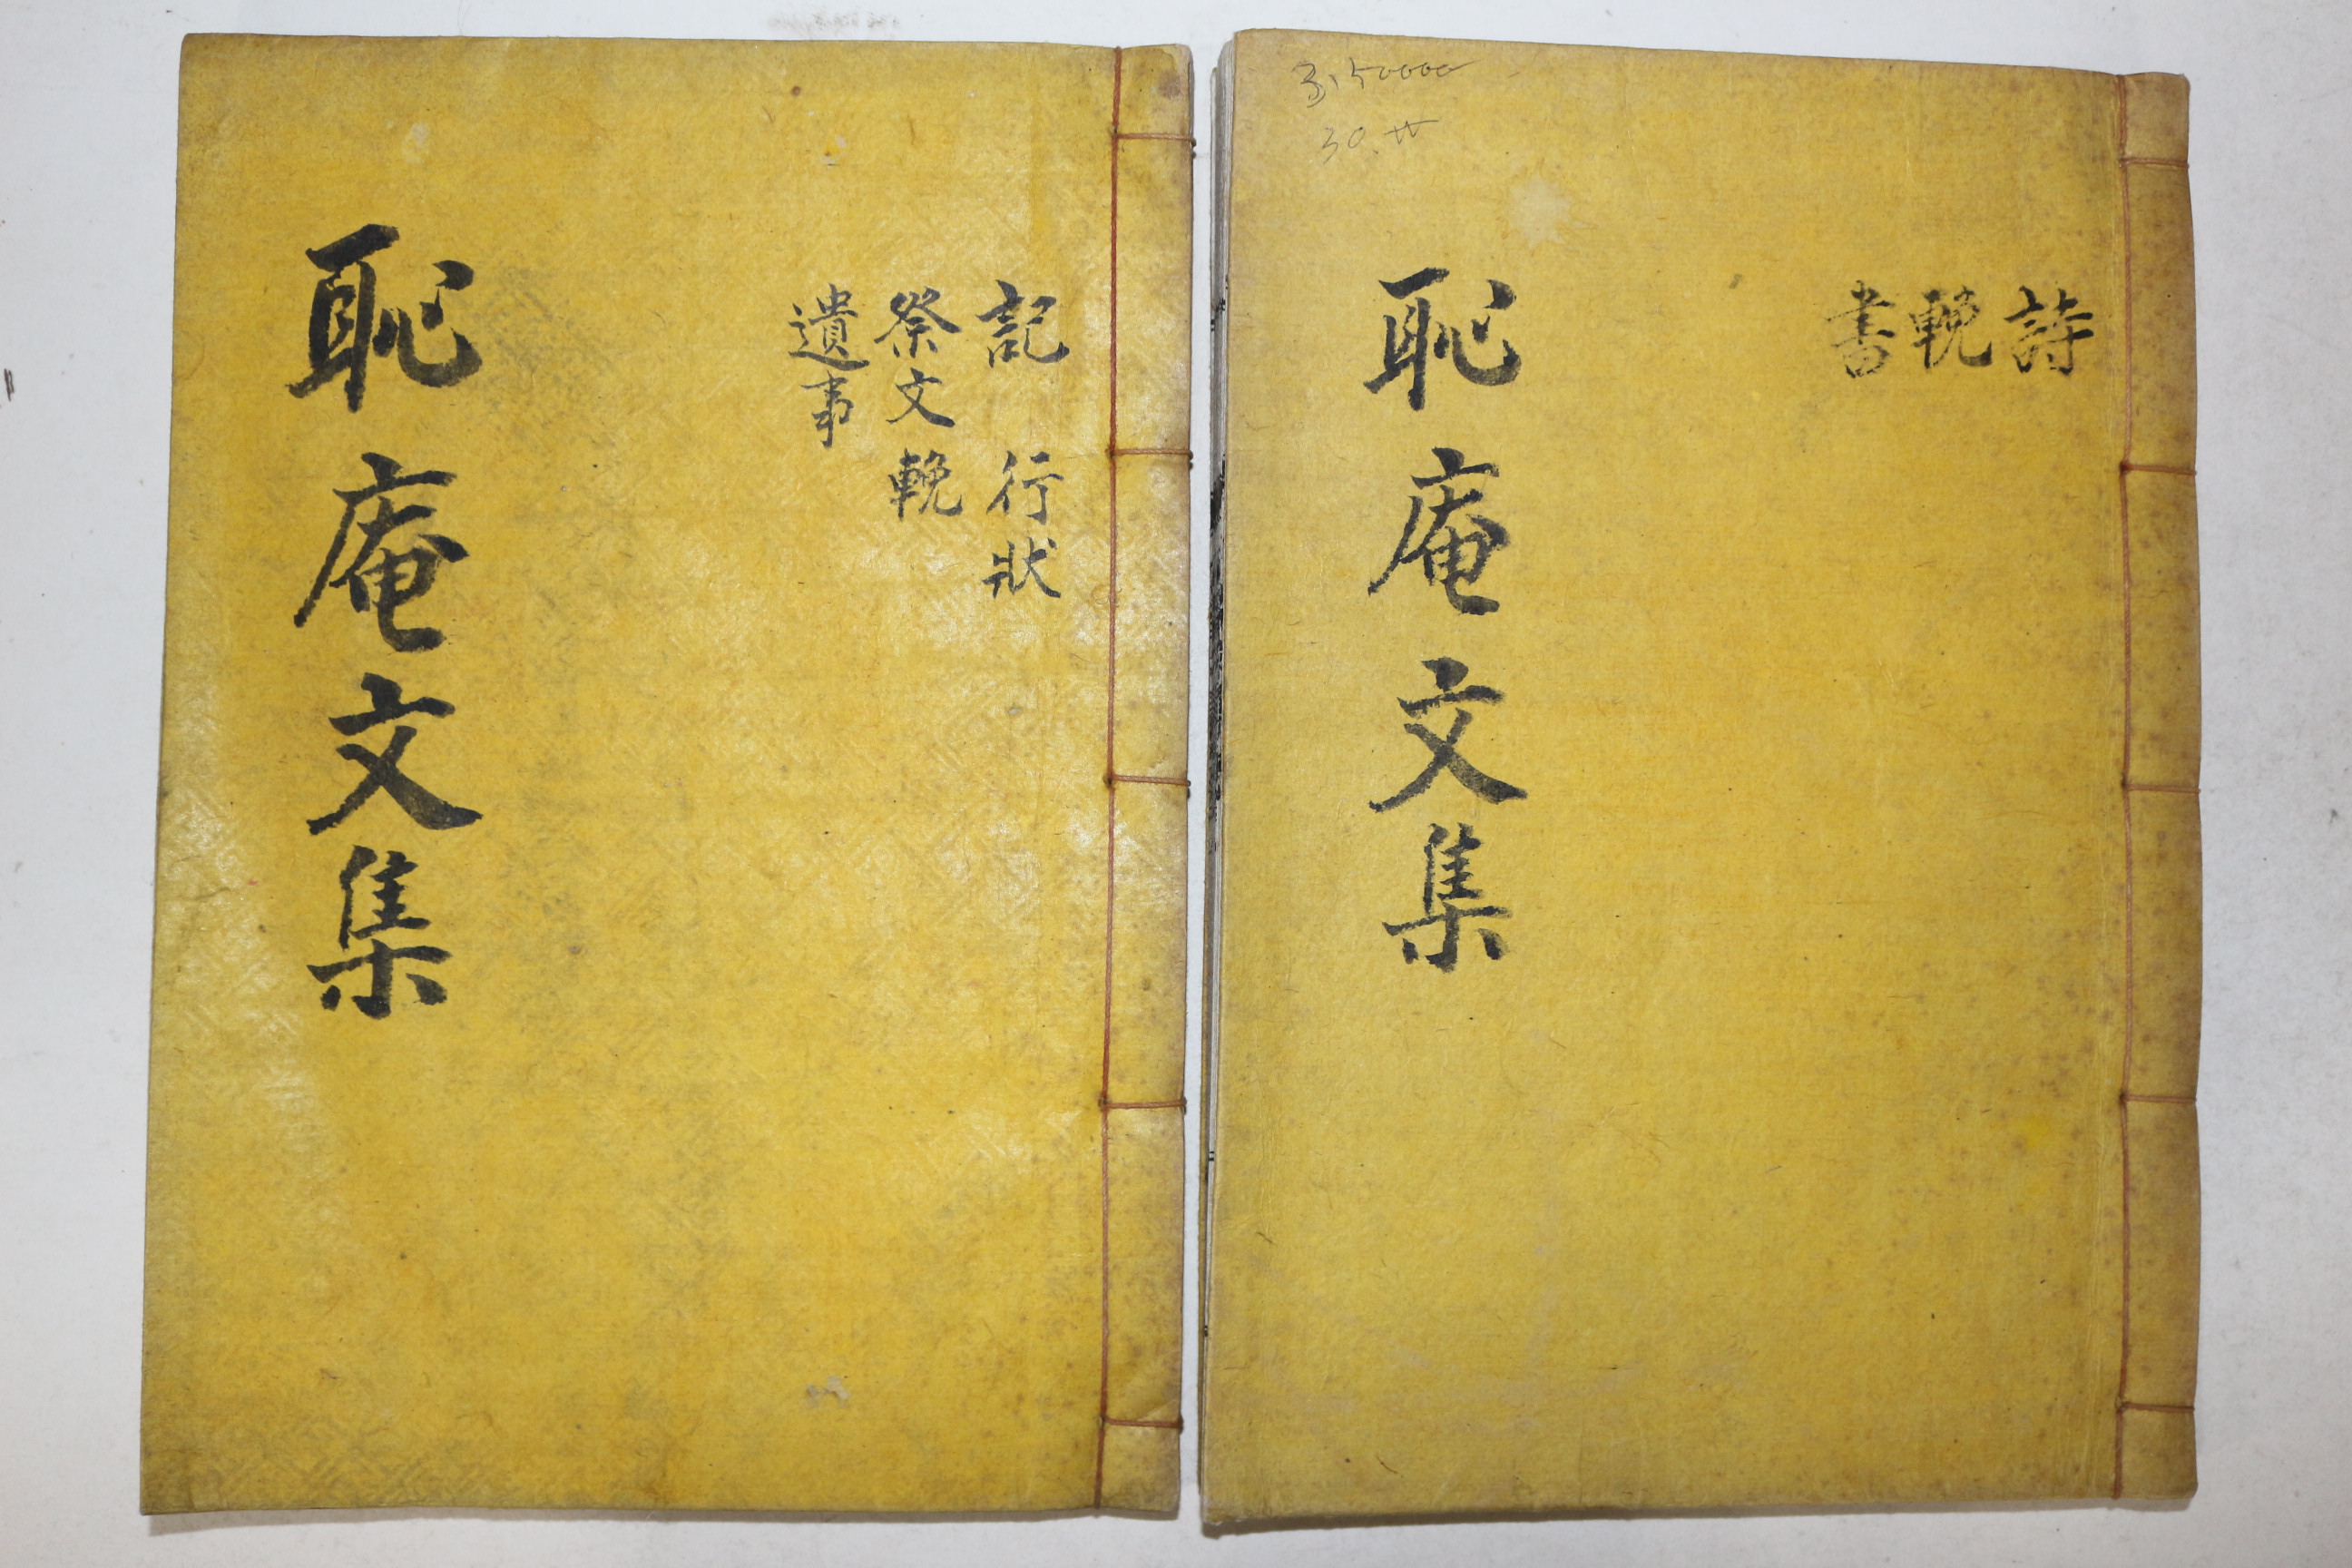 恥庵文集
詩
輓
書
恥庵文集
記 行狀
祭文 輓
遺事